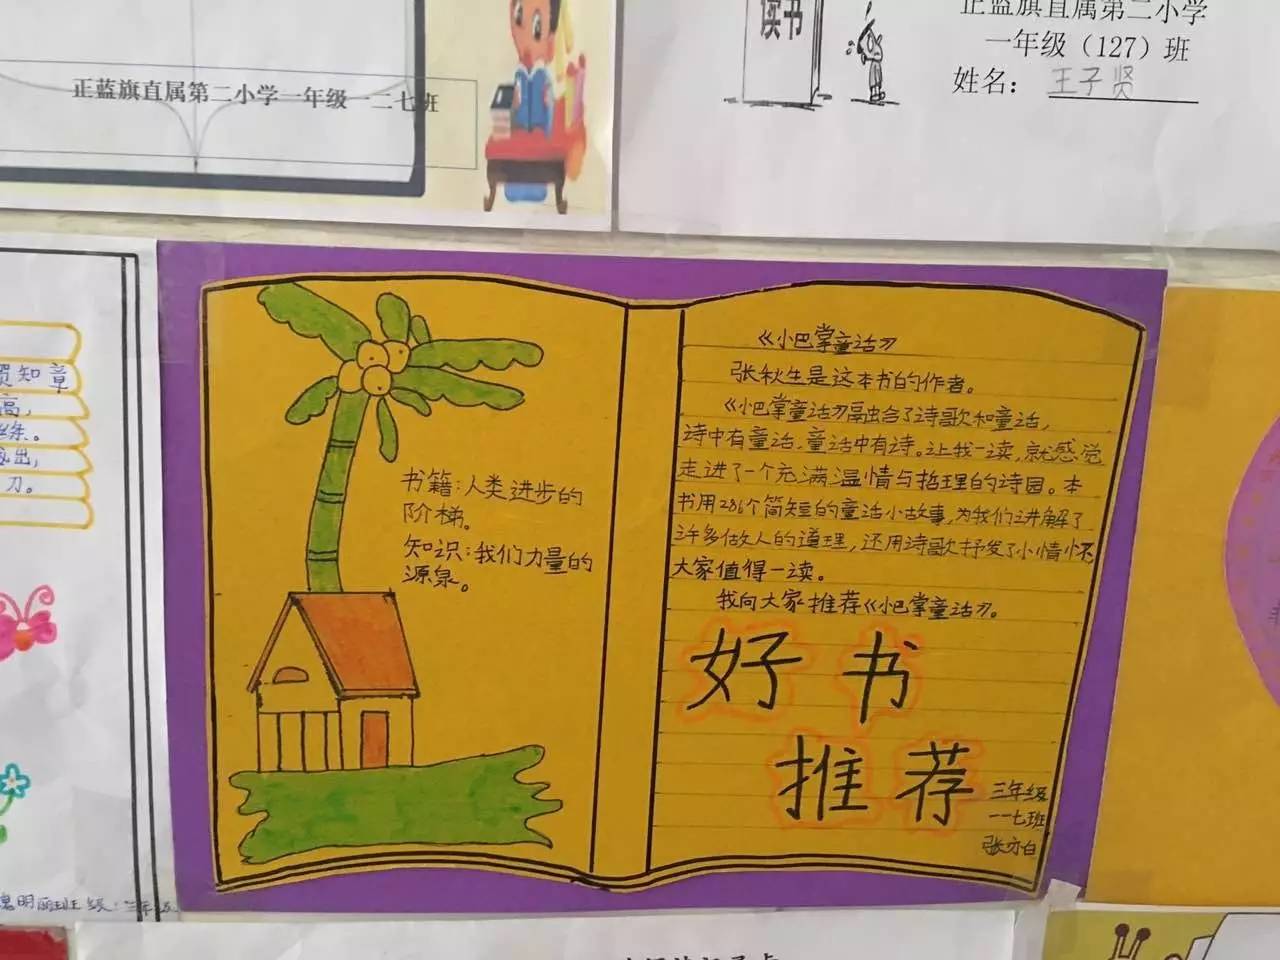 正蓝旗直属第二小学一年级一二七班
读书
正蓝旗直属第二小学
一年级（127）班
姓名：王子贤
贺知章
高，
丝条。
出，
刀。
书籍：人类进步的
阶梯。
知识：我们力量的
源泉。
《小巴掌童话》
张秋生是这本书的作者。
《小巴掌童话》融合了诗歌和童话，
诗中有童话，童话中有诗。让我一读，就感觉
走进了一个充满温情与哲理的诗园。本
书用286个简短的童话小故事，为我们讲解了
许多做人的道理，还用诗歌抒发了小情怀，
大家值得一读。
我向大家推荐《小巴掌童话》。
好书
推荐
三年级
一一七班